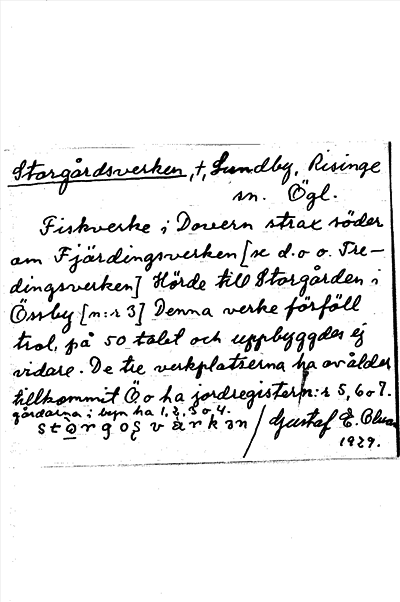 Storgårdsverken, †, Sundby, Risinge
sn. Ögl.
Fiskverke i Dovern strax söder
om Fjärdingsverken [se d.o o. Tre-
dingsverken] Hörde till Storgården i
Össby [n:r 3] Denna verke förföll
trol. på 50 talet och uppbyggdes ej
vidare. De tre verkplatserna ha av ålder
tillkommit Ö o ha jordregister n:r 5, 6 o 7.
gårdarna i byn ha 1, 2, 3 o, 4.
Gustaf E. Olsson
1929.